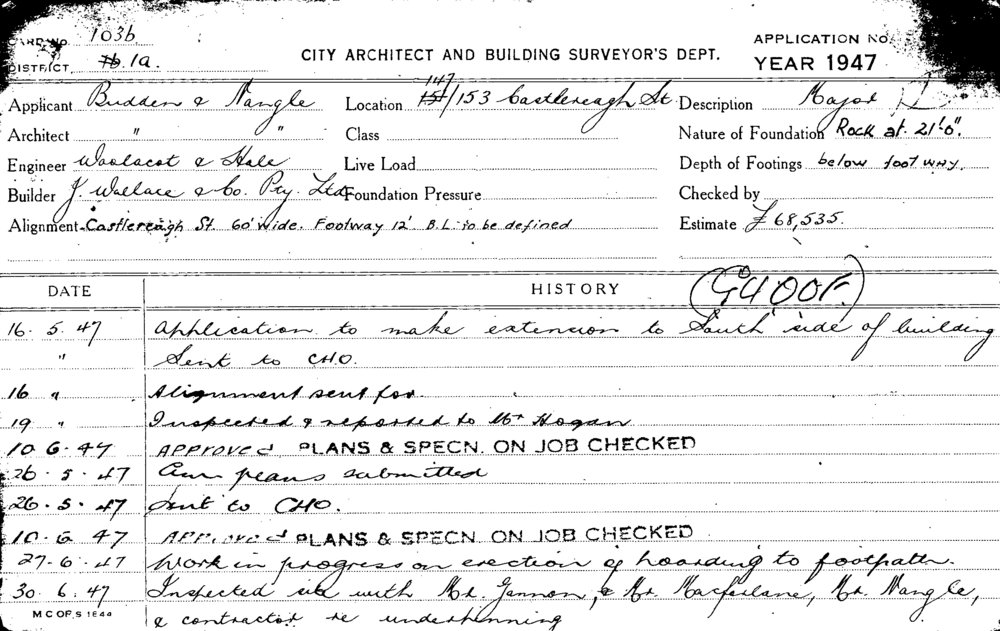 CARD NO. 1036
CITY ARCHITECT AND BUILDING SURVEYOR'S DEPT.
APPLICATION NO.
DISTRICT. 1b. 1a.
YEAR 1947
Applicant Budden & Nangle Location 151/147/153 Castlereagh St. Description Major
Architect " " Class Nature of Foundation Rock at 21'0".
Engineer Woolacot & Hale Live Load Depth of Footings below footway.
Builder J. Wallace & Co. Pty. Ltd Foundation Pressure Checked by
Alignment Castlereagh St. 60' wide. Footway 12'. B.L. to be defined Estimate £68,535.
DATE HISTORY
16. 5. 47 Application to make extension to South side of building
" Sent to CHO.
16 " Alignment sent for
19 " Inspected & reported to Mr Hogan
10 6. 47 APPROVED PLANS & SPECN. ON JOB CHECKED
26. 5. 47 Am plans submitted
26. 5. 47 Sent to CHO.
10. 6 47 APPROVED PLANS & SPECN. ON JOB CHECKED
27. 6. 47 Work in progress on erection of hoarding to footpath.
30. 6. 47 Inspected site with Mr. Gannon, & Mr. Macfarlane, Mr. Nangle,
M C OF S 1844 & contractor re underpinning